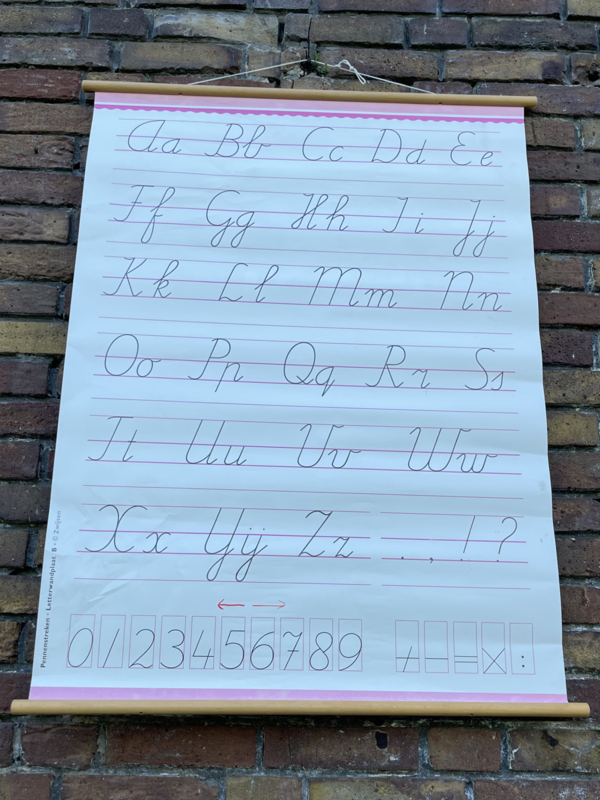 Aa Bb Cc Dd Ee
Ff Gg Hh Ii Jj
Kk Ll Mm Nn
Oo Pp Qq Rr Ss
Tt Uu Vv Ww
Xx IJij Zz . , ! ?
← →
0 1 2 3 4 5 6 7 8 9 + - = × :
Pennenstreken - Letterwandplaat, B - © Zwijsen